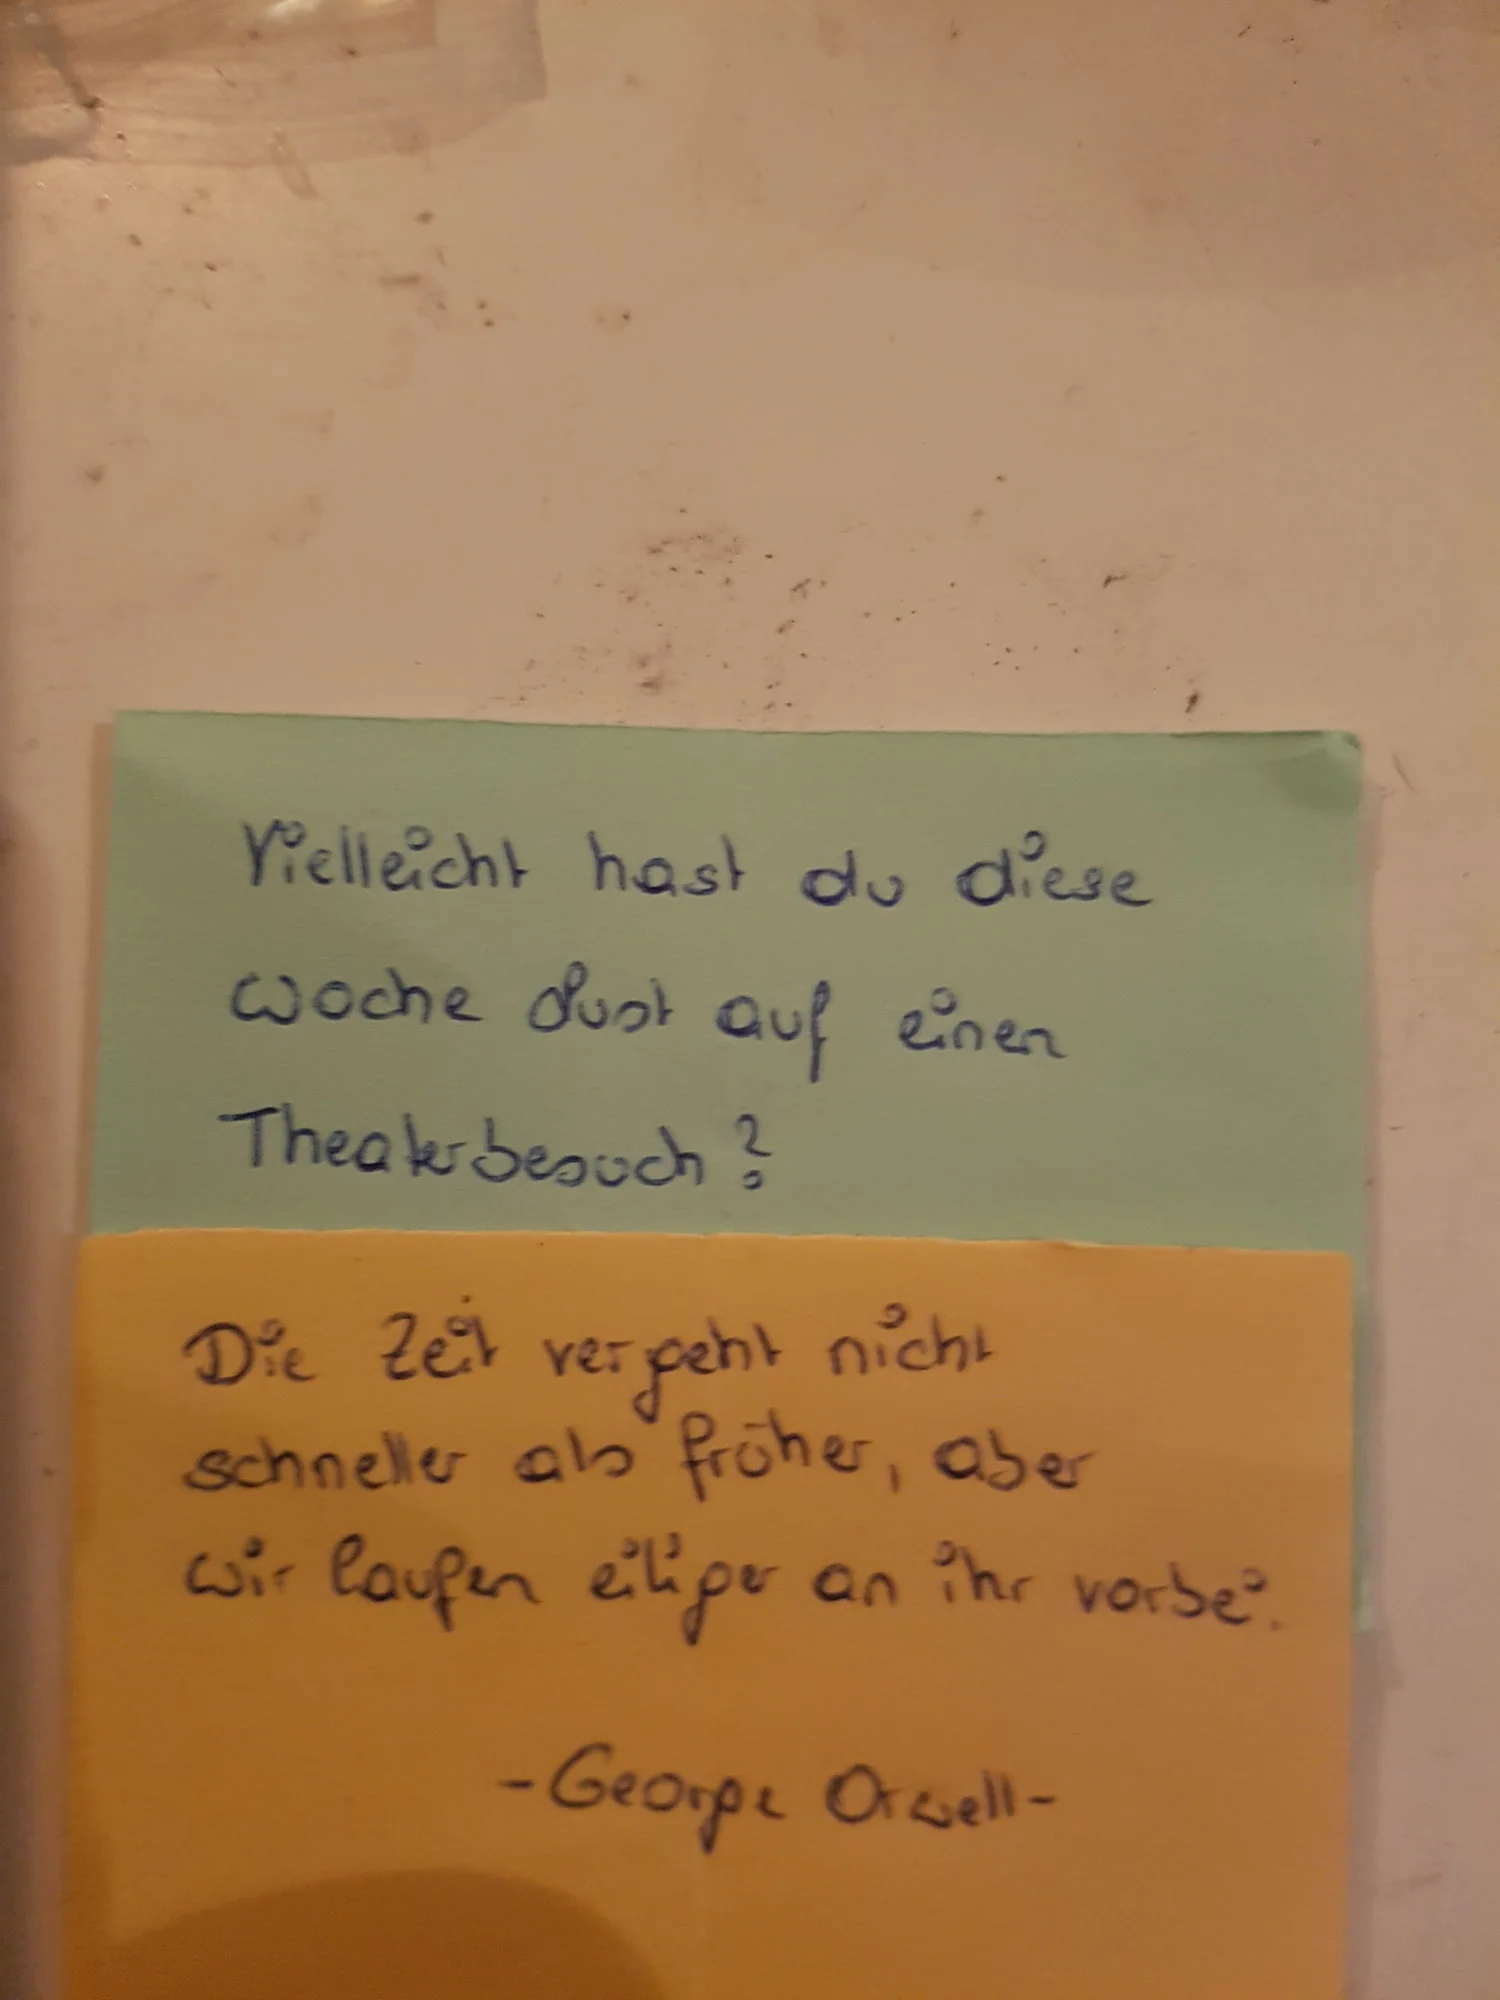 Vielleicht hast du diese
Woche Lust auf einen
Theaterbesuch?
Die Zeit vergeht nicht
schneller als früher, aber
wir laufen eiliger an ihr vorbei.
-George Orwell-